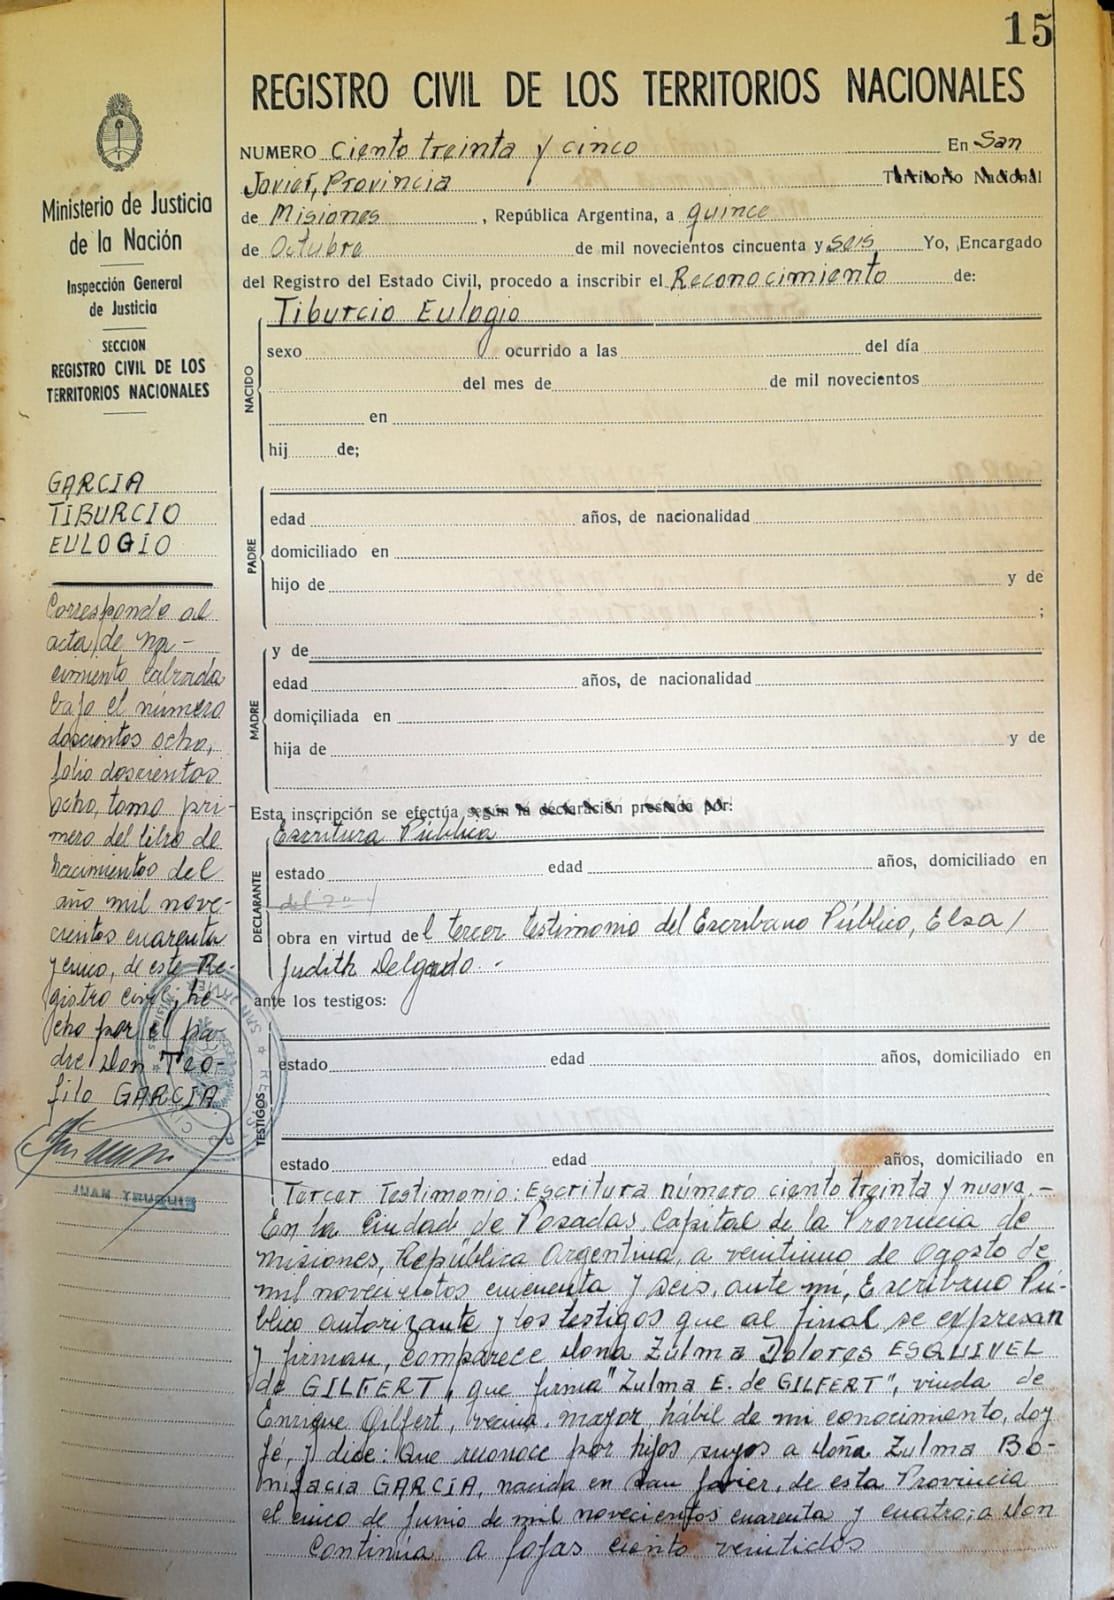 15
REGISTRO CIVIL DE LOS TERRITORIOS NACIONALES
NUMERO Ciento treinta y cinco En San
Javier, Provincia Territorio Nacional
de Misiones , República Argentina, a quince
de Octubre de mil novecientos cincuenta y seis Yo, Encargado
del Registro del Estado Civil, procedo a inscribir el Reconocimiento de:
Tiburcio Eulogio
NACIDO
sexo ocurrido a las del día
del mes de de mil novecientos
en
hij de;
PADRE
edad años, de nacionalidad
domiciliado en
hijo de y de
;
MADRE
y de
edad años, de nacionalidad
domiciliada en
hija de y de
Esta inscripción se efectúa según la declaración prestada por:
Escritura Pública
DECLARANTE
estado edad años, domiciliado en
obra en virtud del tercer testimonio del Escribano Público, Elsa /
Judith Delgado. -
ante los testigos:
TESTIGOS
estado edad años, domiciliado en
estado edad años, domiciliado en
Tercer Testimonio: Escritura número ciento treinta y nueve. -
En la Ciudad de Posadas, Capital de la Provincia de
Misiones, República Argentina, a veintiuno de Agosto de
mil novecientos cincuenta y seis, ante mí, Escribano Pú-
blico autorizante y los testigos que al final se expresan
y firman, comparece doña Zulma Dolores ESQUIVEL
de GILFERT, que firma "Zulma E. de GILFERT", viuda de
Enrique Gilfert, vecina, mayor, hábil de mi conocimiento, doy
fé, y dice: Que reconoce por hijos suyos a doña Zulma Bo-
nifacia GARCIA, nacida en San Javier, de esta Provincia
el cinco de Junio de mil novecientos cuarenta y cuatro; a don
Continúa a fojas ciento veintidos
Ministerio de Justicia
de la Nación
Inspección General
de Justicia
SECCION
REGISTRO CIVIL DE LOS
TERRITORIOS NACIONALES
GARCIA
TIBURCIO
EULOGIO
Corresponde al
acta de na-
cimiento labrada
bajo el número
doscientos ocho,
folio doscientos
ocho, tomo pri-
mero del libro de
nacimientos del
año mil nove-
cientos cuarenta
y cinco, de este Re-
gistro civil, he-
cho por el pa-
dre Don Teo-
filo GARCIA
JUAN